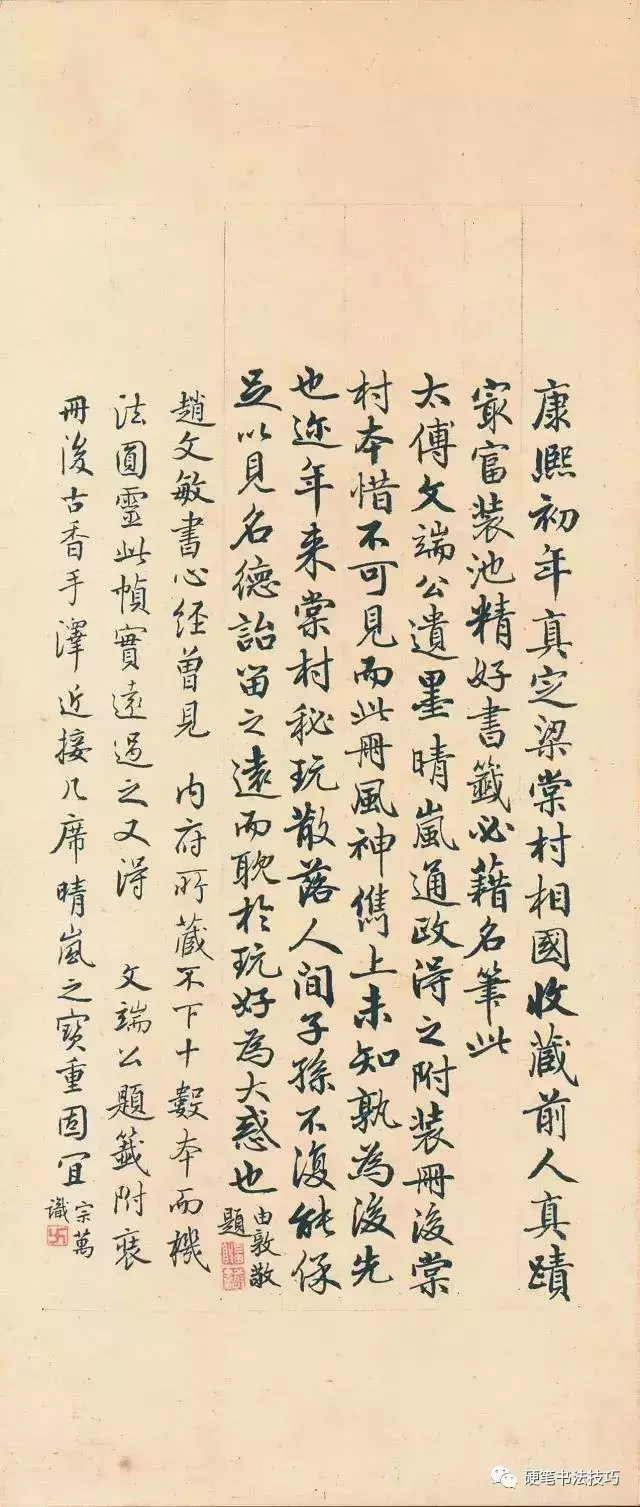 康熙初年真定梁棠村相國收藏前人真蹟
冣富装池精好書籤必藉名筆此
太傅文端公遺墨晴嵐通政得之附装冊後棠
村本惜不可見而此冊風神儁上未知孰為後先
也迩年来棠村秘玩散落人間子孫不復能保
足以見名德詒留之遠而耽於玩好為大惑也
由敦敬
題
趙文敏書心経曾見 内府所藏不下十數本而機
法圓靈此幀實遠過之又得 文端公題籤附裝
冊後古香手澤近接几席晴嵐之寳重固宜
宗萬
識
硬笔书法技巧